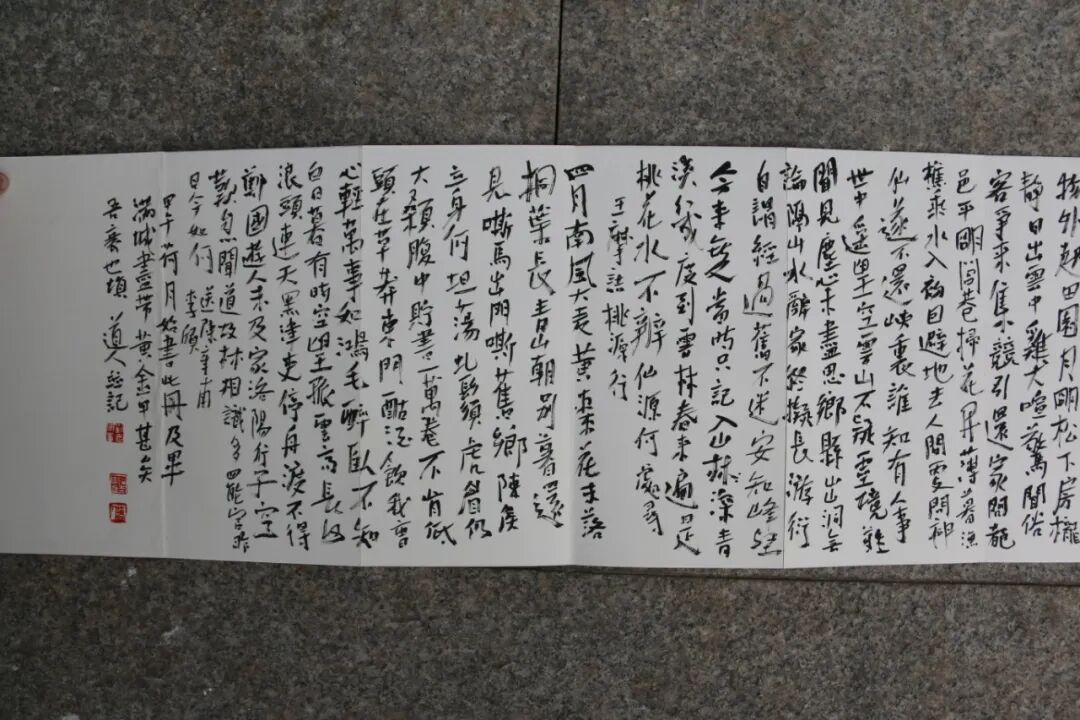 物外起田園月明松下房櫳
靜日出雲中雞犬喧驚聞俗
客爭來集競引還家問都
邑平明閭巷掃花開薄暮漁
樵乘水入初因避地去人間更問神
仙遂不還峽裏誰知有人事
世中遙望空雲山不疑靈境難
聞見塵心未盡思鄉縣出洞無
論隔山水辭家終擬長游衍
自謂經過舊不迷安知峰壑
今來變當時只記入山深青
溪幾度到雲林春來遍是
桃花水不辨仙源何處尋
王摩詰桃源行
四月南風大麥黃棗花未落
桐葉長青山朝別暮還
見嘶馬出門嘶舊鄉陳侯
立身何坦蕩虬鬚虎眉仍
大顙腹中貯書一萬卷不肯低
頭在草莽東門酤酒飲我曹
心輕萬事如鴻毛醉臥不知
白日暮有時空望孤雲高長河
浪頭連天黑津吏停舟渡不得
鄭國遊人未及家洛陽行子空
歎息聞道故林相識多罷官昨
日今如何 送陳章甫
李頎
甲午荷月始書此冊及畢
滿城盡帶黃金甲甚矣
吾衰也 道人